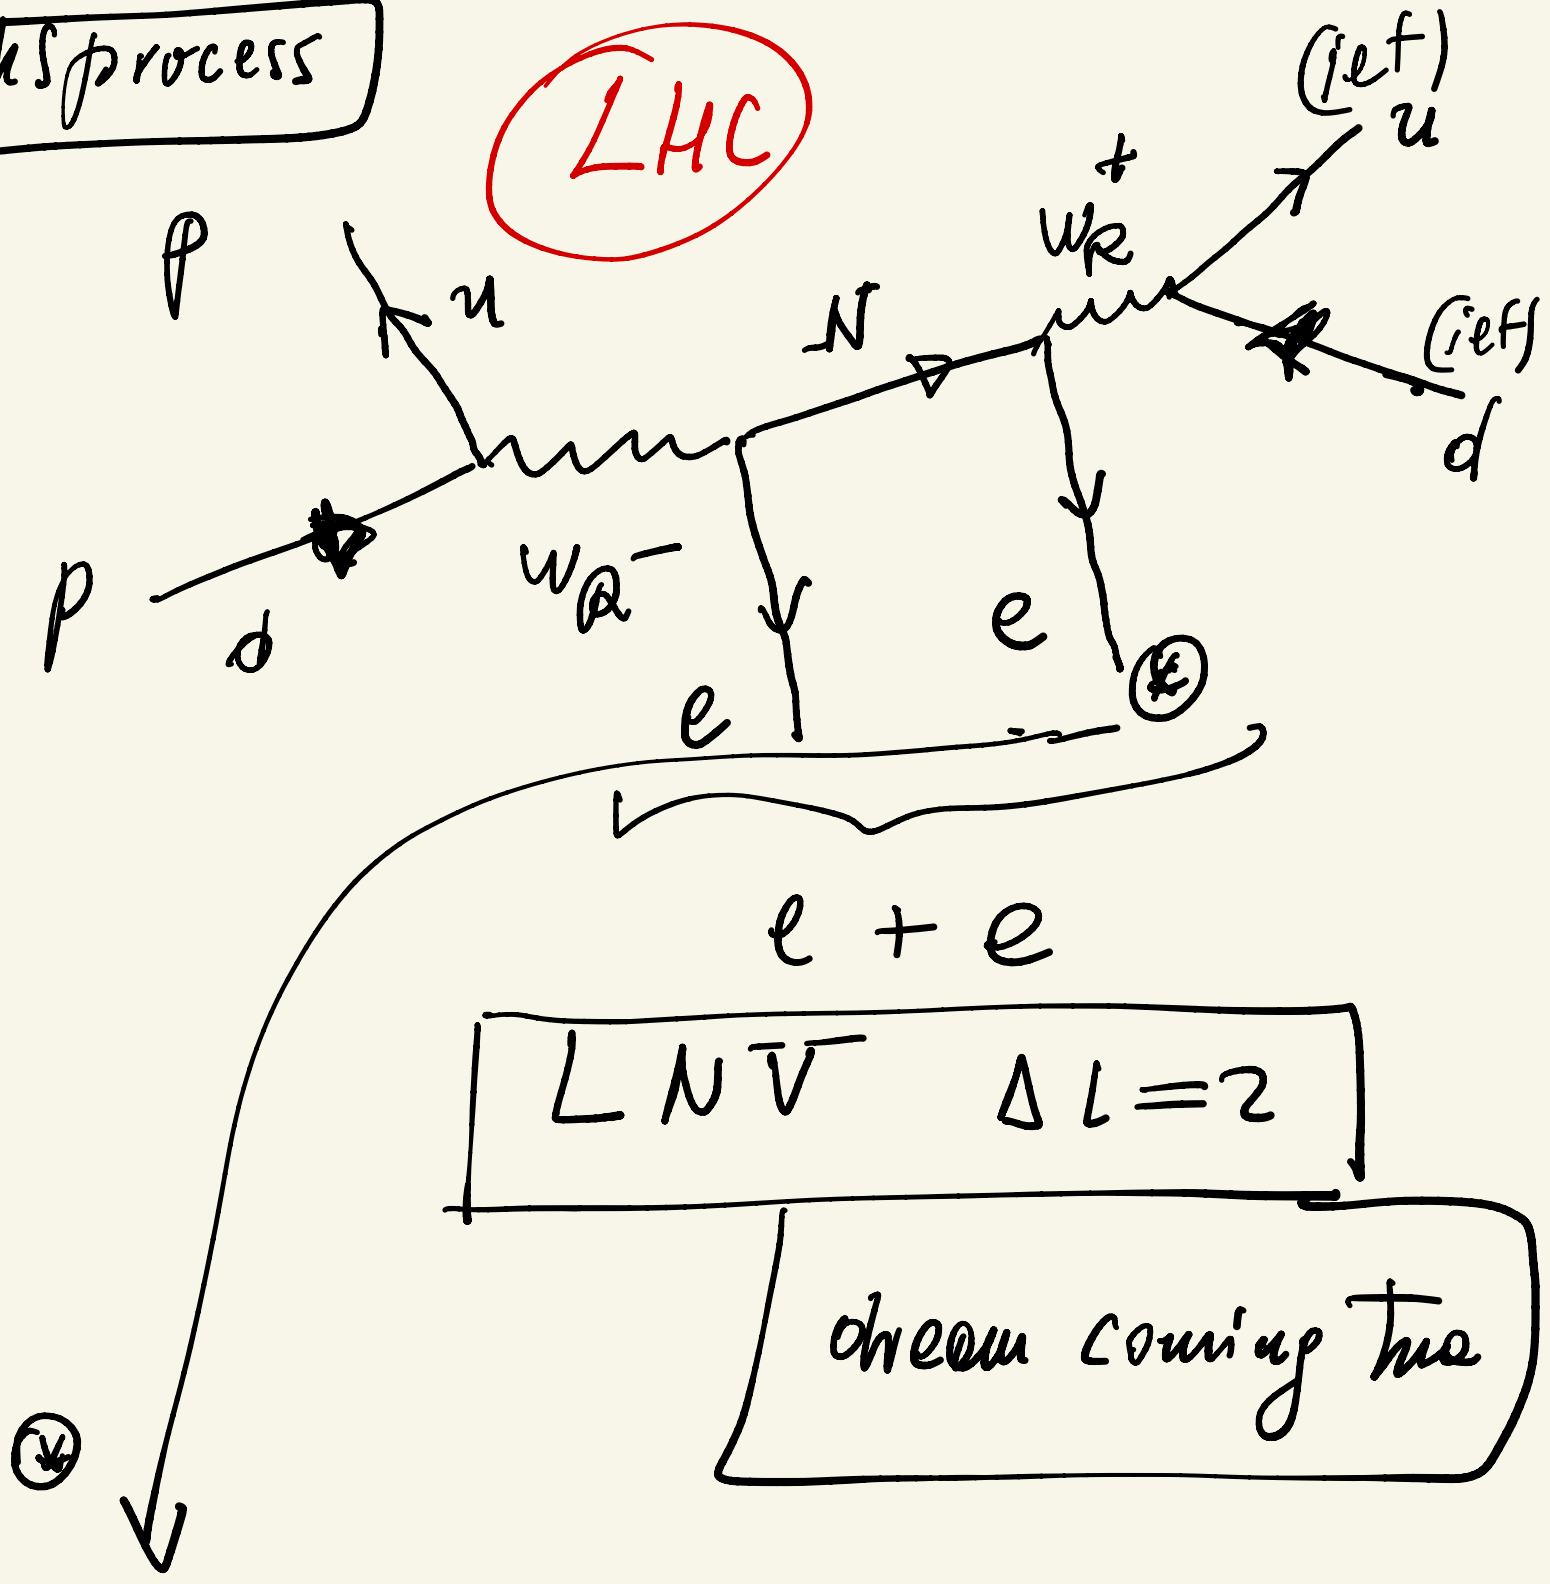 process
LHC
(jet)
u
W_R^+
p
u
N
(jet)
d
p
d
W_R^-
e
e
e + e
LNV ΔL=2
dream coming true